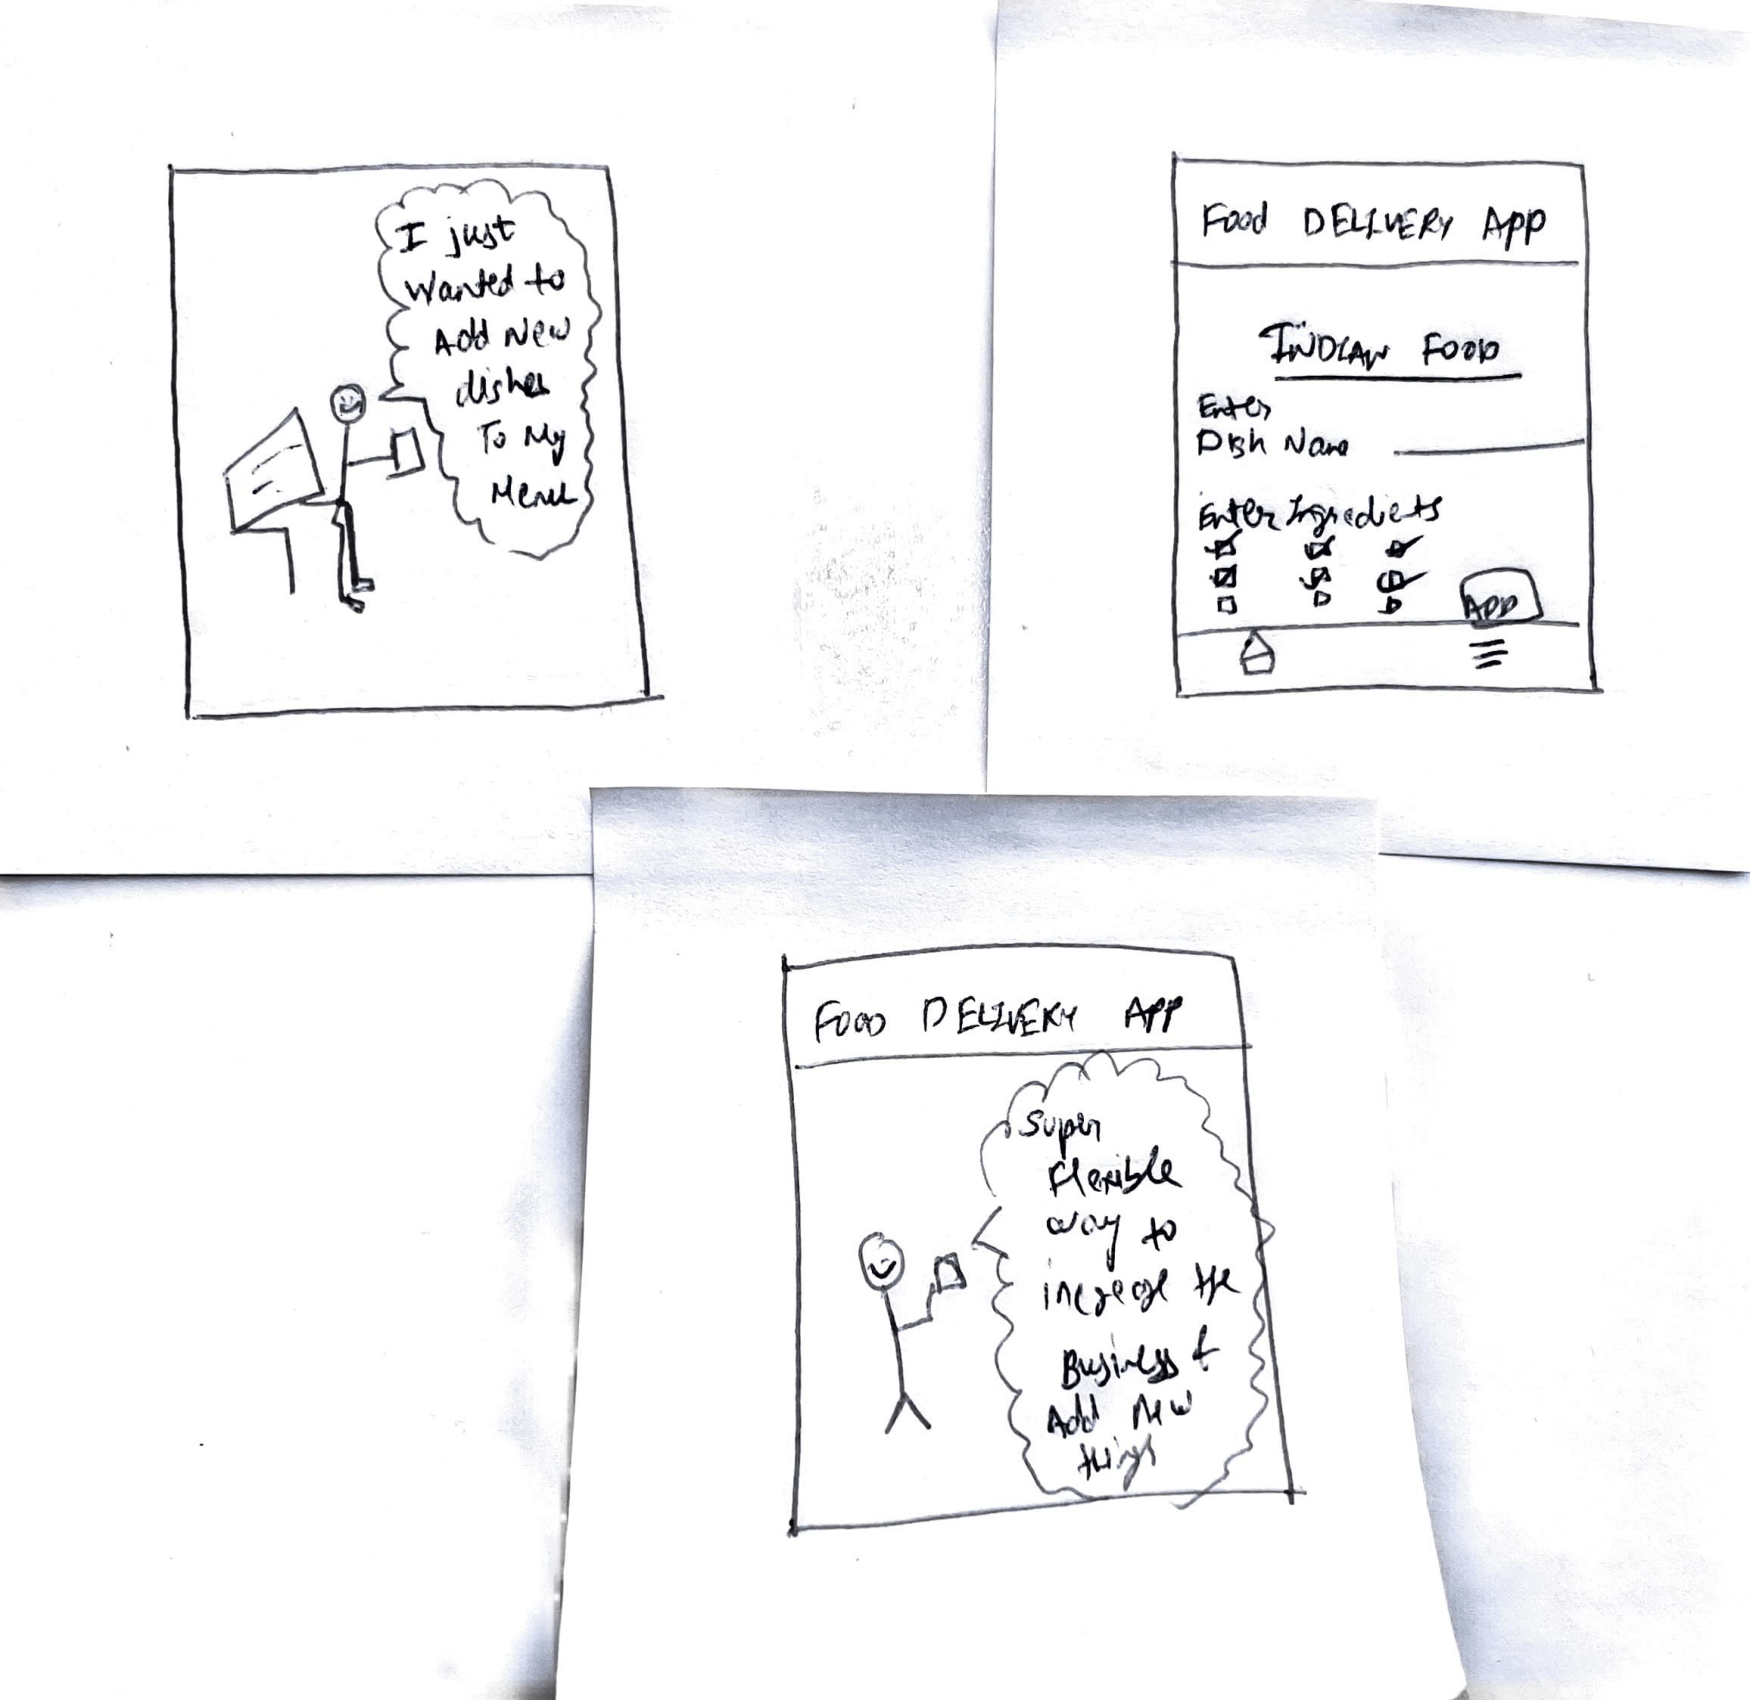 I just
wanted to
Add New
dishes
To My
Menu
Food DELIVERY APP
INDIAN FOOD
Enter
Dish Name
Enter Ingredients
ADD
FOOD DELIVERY APP
Super
Flexible
way to
increase the
Business &
Add New
things